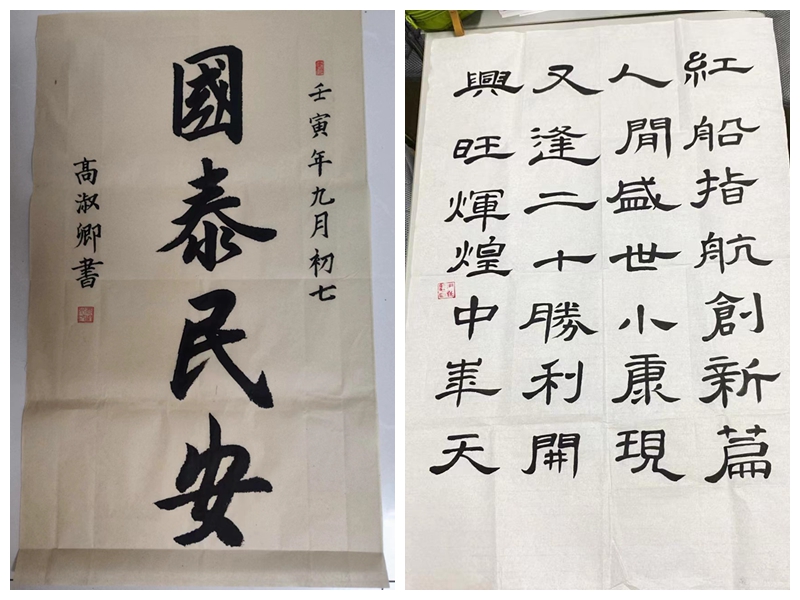 壬寅年九月初七
國泰民安
高淑卿書
紅船指航創新篇
人間盛世小康現
又逢二十勝利開
興旺輝煌中華天